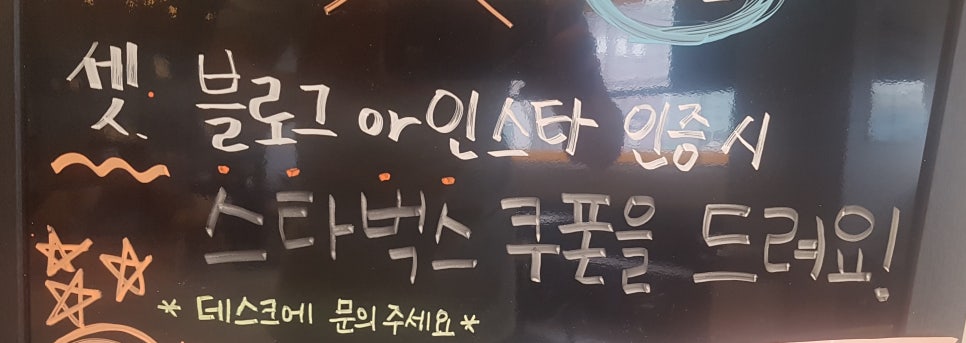 셋. 블로그 or 인스타 인증시
스타벅스 쿠폰을 드려요!
* 데스크에 문의주세요 *